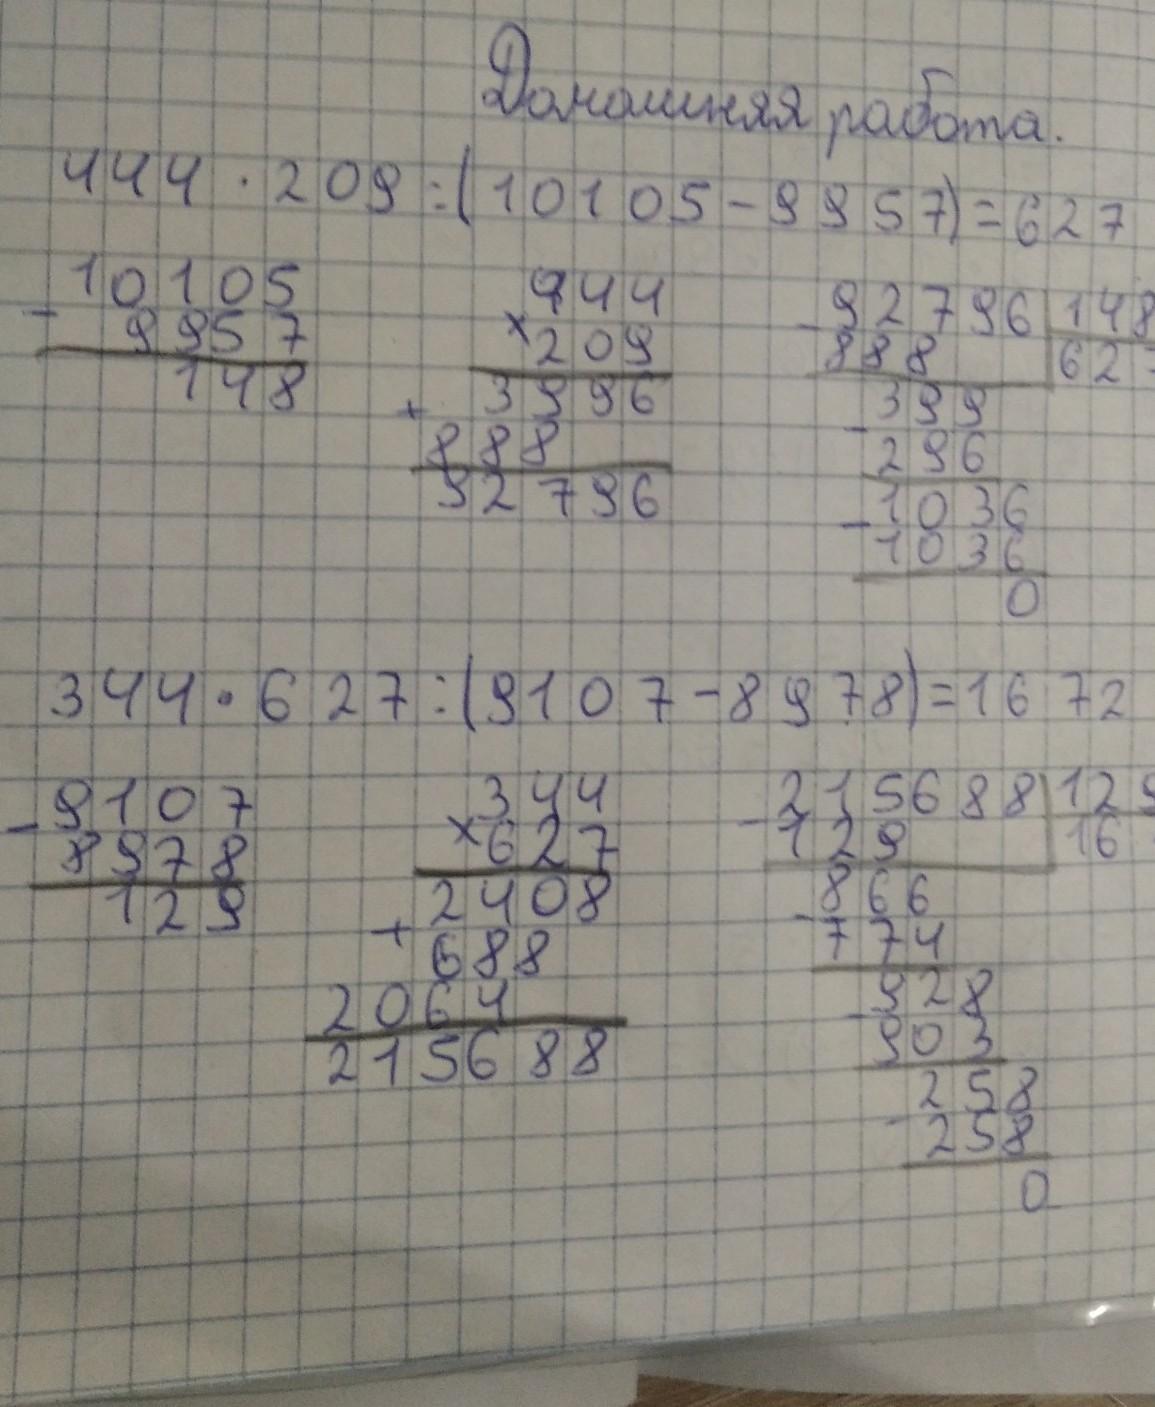 Домашняя работа.
444 · 209 : (10105 - 9957) = 627
10105
- 9957
148
444
× 209
3996
+ 888
92796
- 92796 | 148
888 | 627
- 399
296
- 1036
1036
0
344 · 627 : (9107 - 8978) = 1672
- 9107
8978
129
344
× 627
2408
+ 688
2064
215688
- 215688 | 129
129 | 16
- 866
774
- 928
903
- 258
258
0